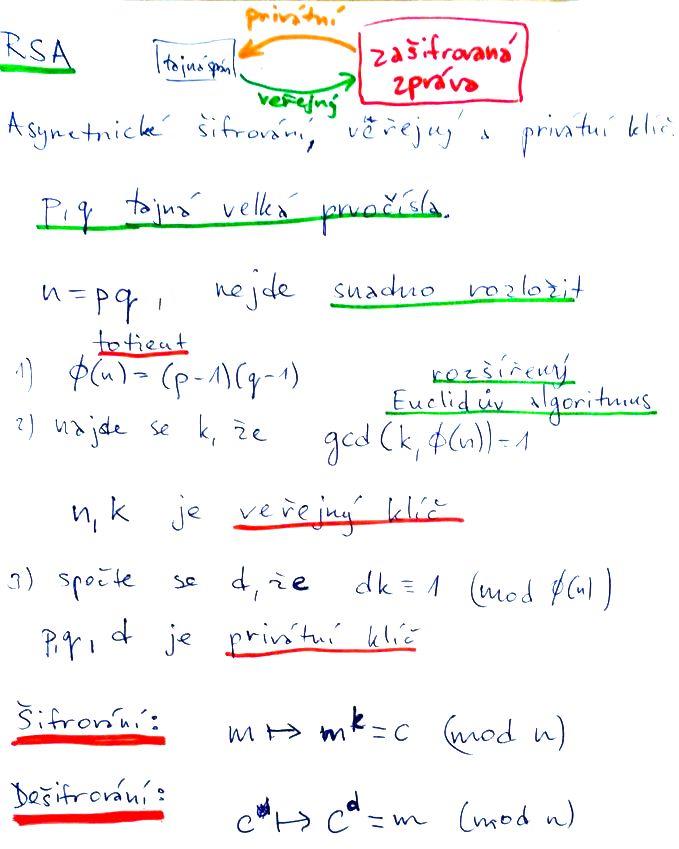 privátní
RSA
tajná zpráv
zašifrovaná
zpráva
veřejný
Asymetrické šifrování, veřejný a privátní klíč.
p, q tajná velká prvočísla.
n = pq, nejde snadno rozložit
totient
1) ϕ(n) = (p-1)(q-1)
rozšířený
Euclidův algoritmus
2) najde se k, že gcd(k, ϕ(n)) = 1
n, k je veřejný klíč
3) spočte se d, že dk ≡ 1 (mod ϕ(n))
p, q, d je privátní klíč
Šifrování: m ↦ m^k = c (mod n)
Dešifrování: c ↦ c^d = m (mod n)